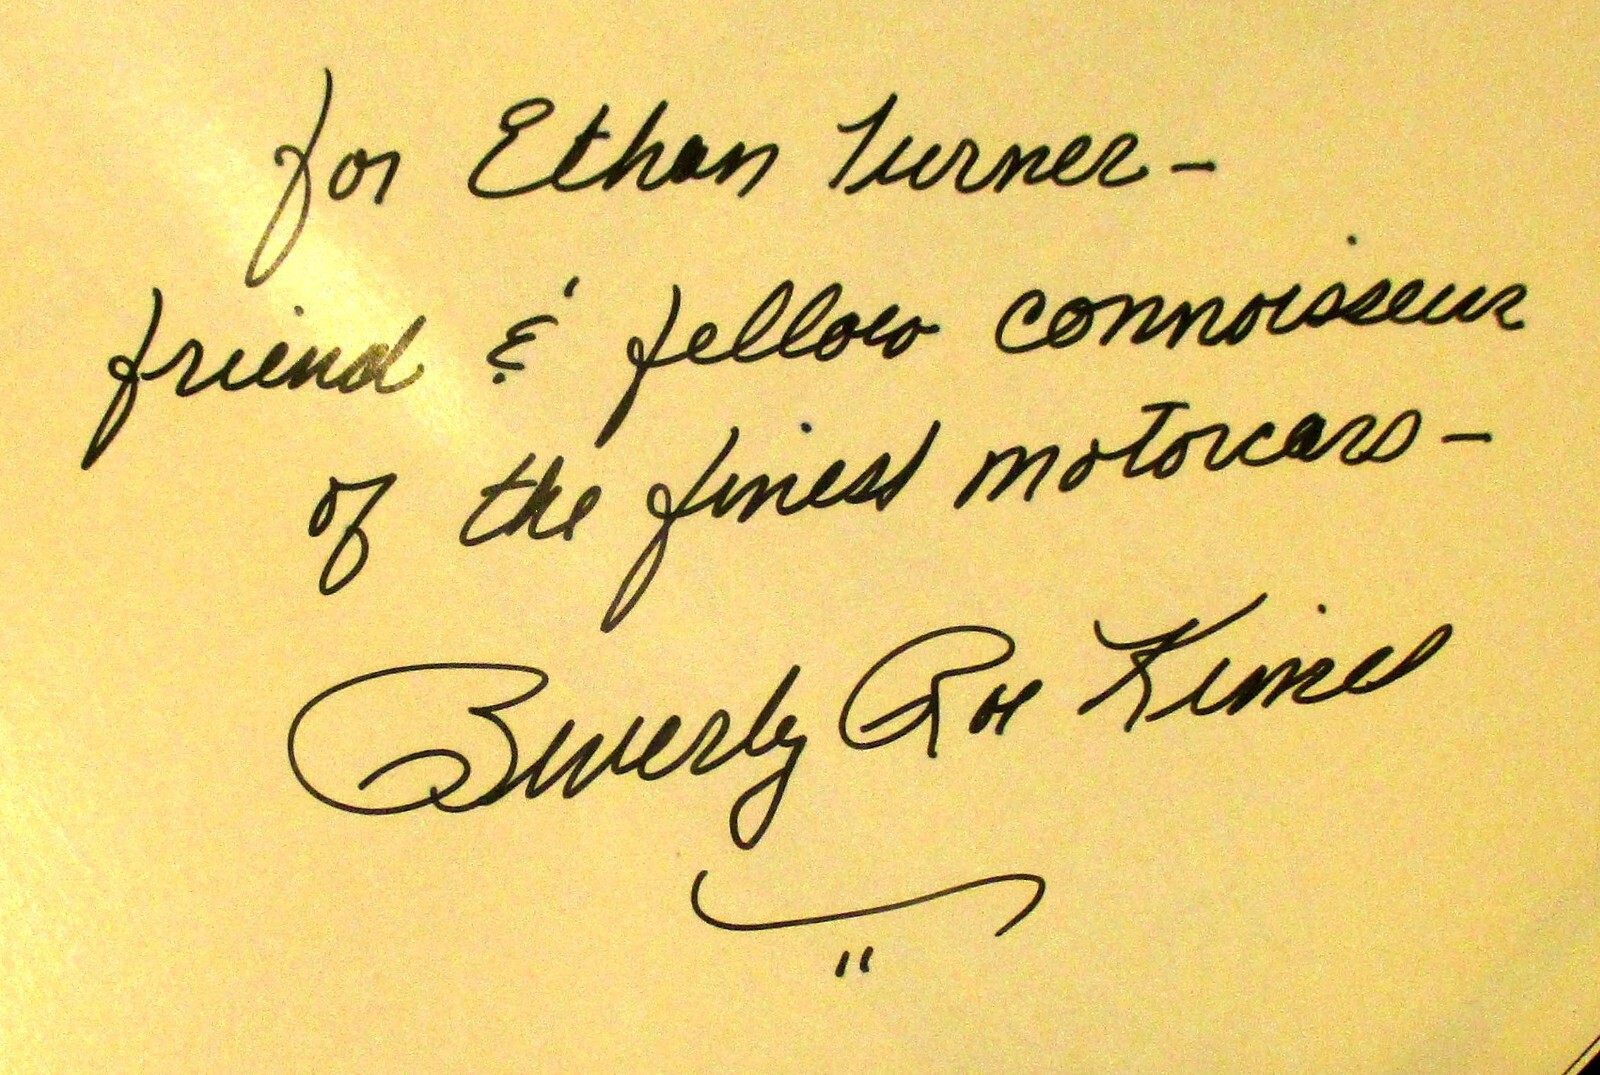 for Ethan Turner -
friend & fellow connoisseur
of the finest motorcars -
Beverly Rae Kimes
"